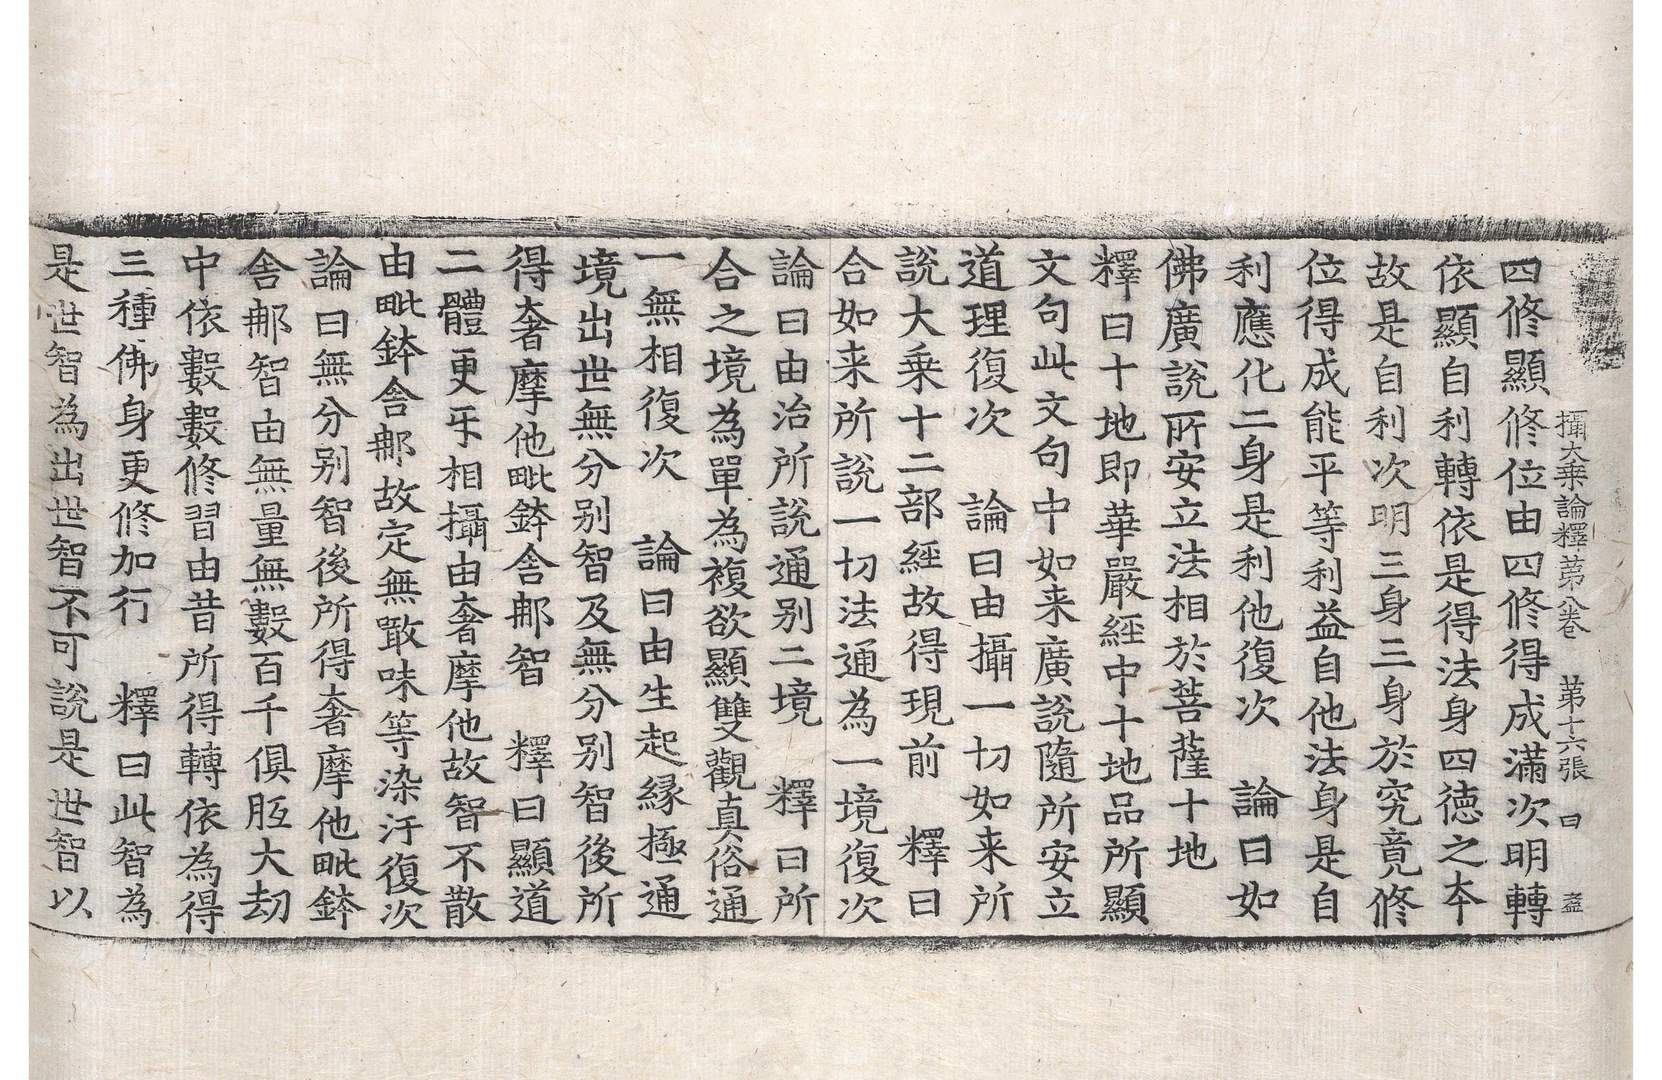 攝大乗論釋苐八卷 苐十六張 曰 盇
四修顯修位由四修得成滿次明轉
依顯自利轉依是得法身四徳之本
故是自利次明三身三身於究竟修
位得成能平等利益自他法身是自
利應化二身是利他復次 論曰如
佛廣說所安立法相於菩薩十地
釋曰十地即華嚴經中十地品所顯
文句此文句中如来廣說隨所安立
道理復次 論曰由攝一切如来所
說大乗十二部經故得現前 釋曰
合如来所說一切法通為一境復次
論曰由治所說通别二境 釋曰所
合之境為單為複欲顯雙觀真俗通
一無相復次 論曰由生起縁極通
境出世無分别智及無分别智後所
得奢摩他毗鉢舍那智 釋曰顯道
二體更㸦相攝由奢摩他故智不散
由毗鉢舍那故定無噉味等染汙復次
論曰無分别智後所得奢摩他毗鉢
舍那智由無量無數百千俱胝大劫
中依數數修習由昔所得轉依為得
三種佛身更修加行 釋曰此智為
是世智為出世智不可說是世智以